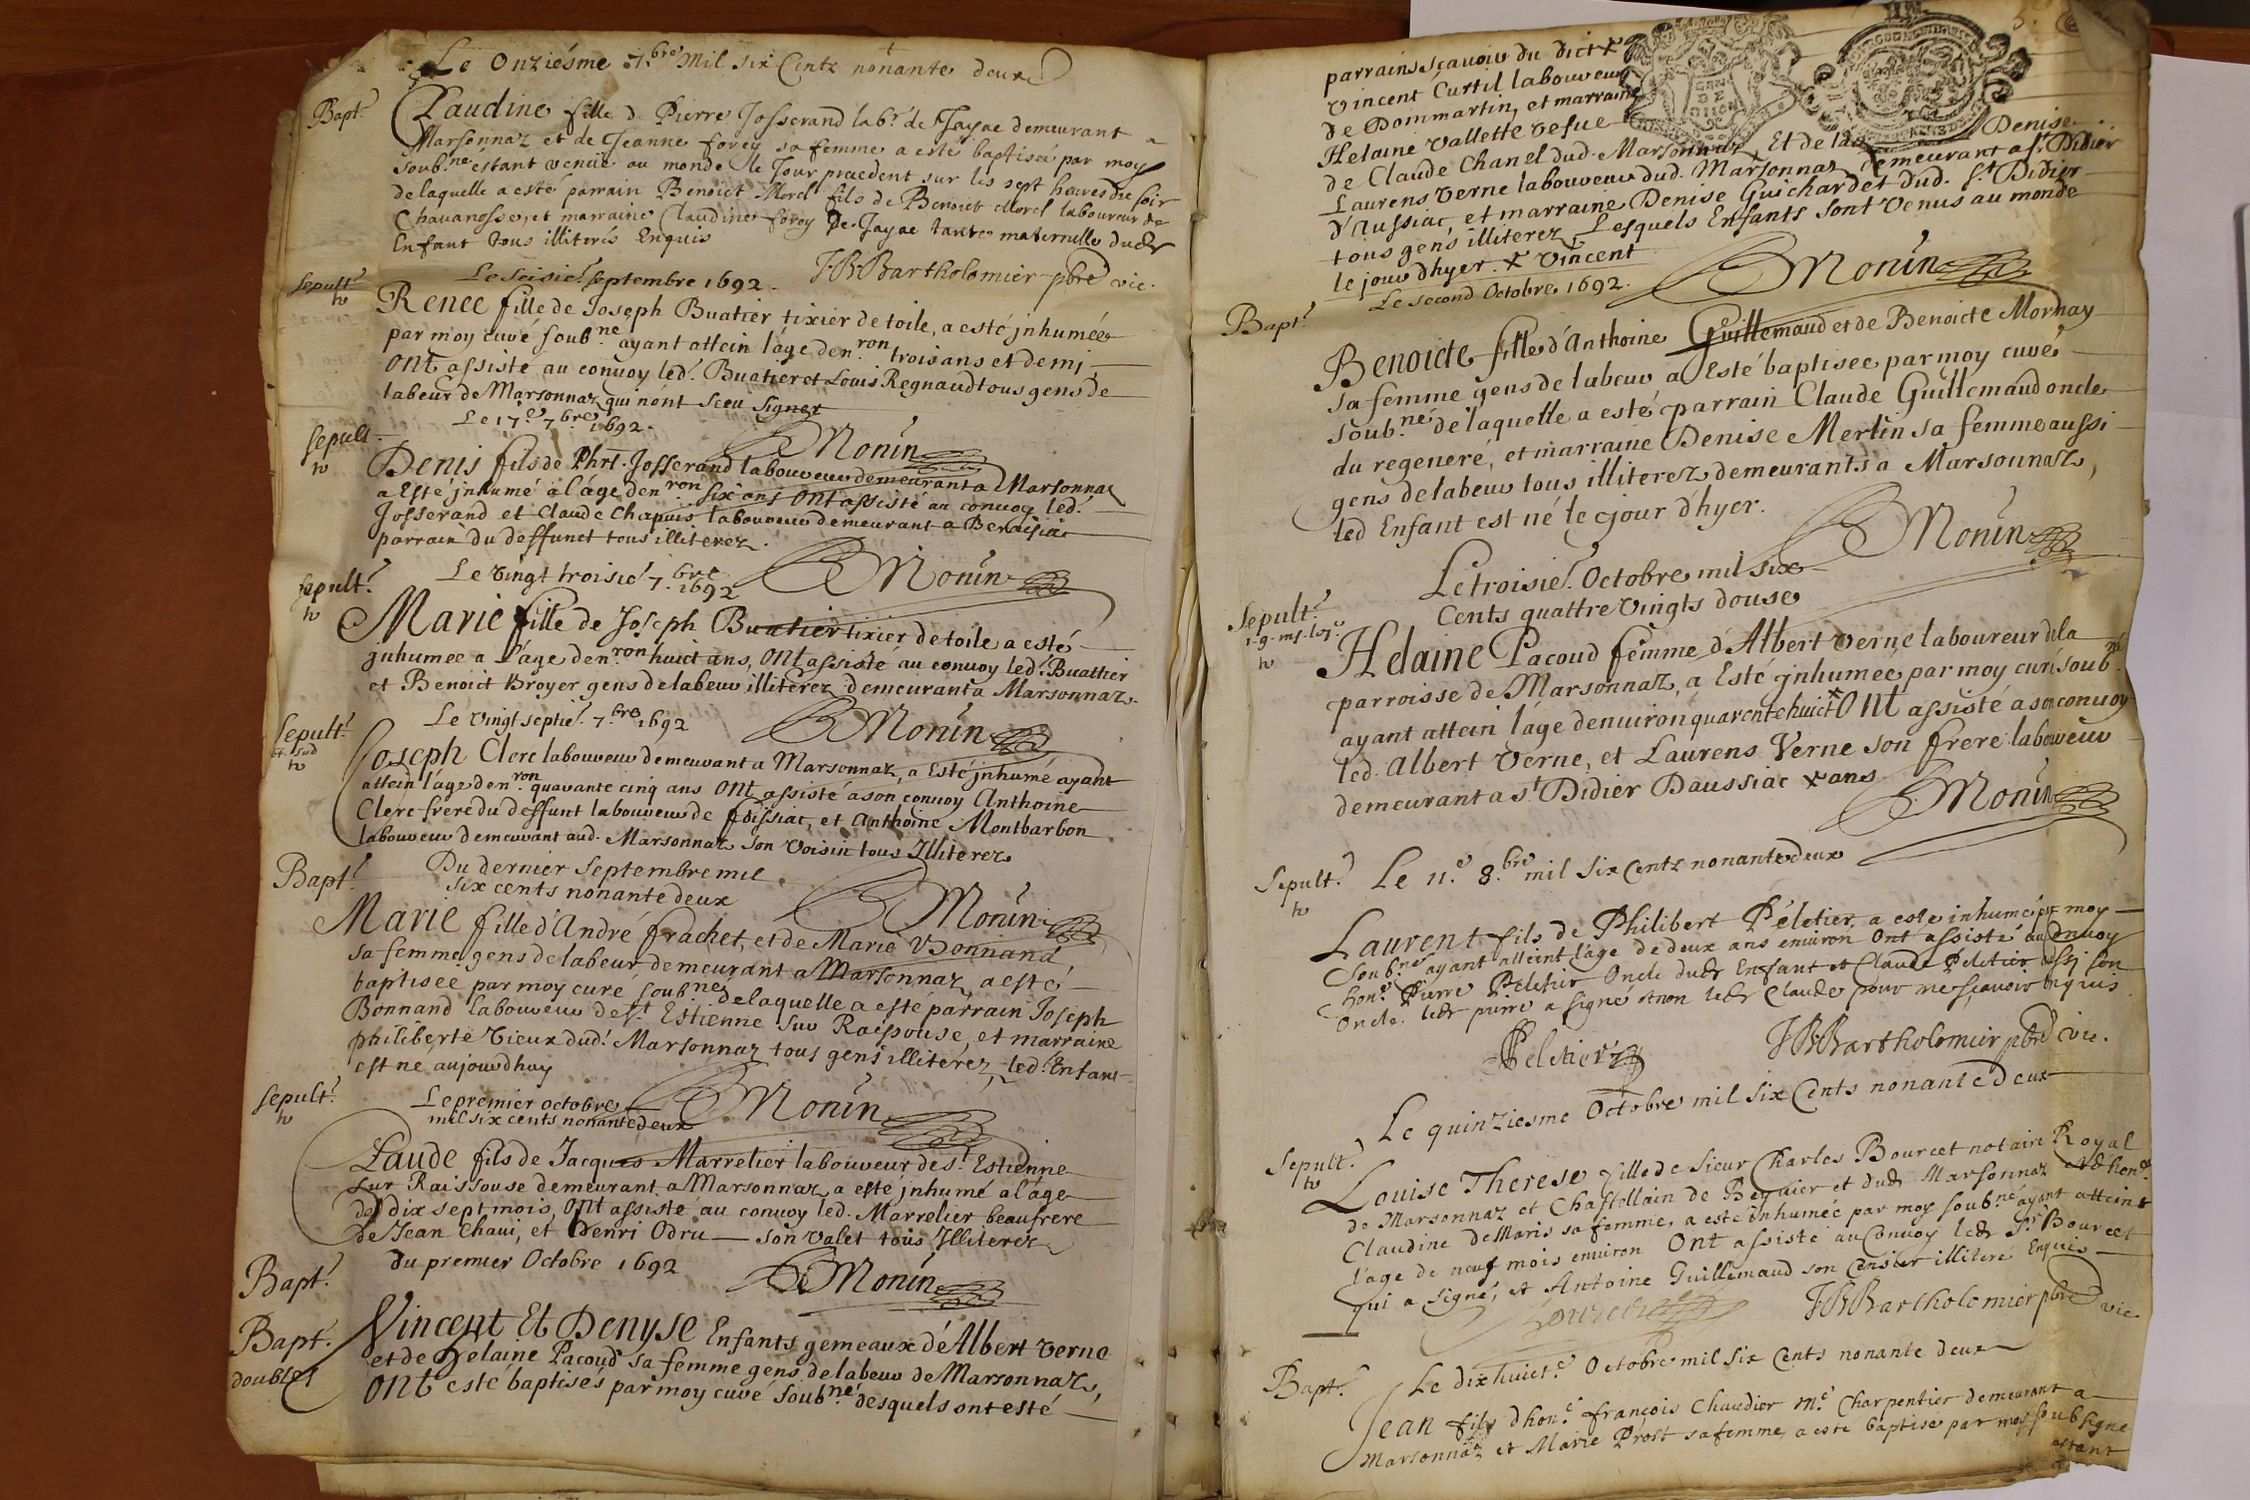 Le Onziésme 7.bre Mil six Centz nonante deux
Bapt.
Claudine fille d Pierre Josserand lab.r de Jayac demeurant a
Marsonnaz et de Jeanne forey sa femme a esté baptisée par moy
soub.ne estant venüe au monde le Jour precedent sur les sept heures du soir
de laquelle a esté parrain Benoict Morel fils de Benoict Morel laboureur de
Chavanosse, et marraine Claudine forey De Jayac tante maternelle dud.
Enfant tous illiterés Enquis
J B Bartholomier pbre vic.
Sepult.
Le seisie. septembre 1692.
Renee fille de Joseph Buatier tixier de toile, a esté jnhumée
par moy curé soub.ne ayant attein l'áge den.ron trois ans et demi
ont assisté au convoy led. Buatier et Louis Regnaud tous gens de
labeur de Marsonnaz qui n'ont sceu signer
Monin
sepult.
Le 17.e 7.bre 1692.
Denis fils de Phrt. Josserand laboureur demeurant a Marsonnaz
a Esté jnhumé a l'áge den.ron six ans ont assisté au convoy led.
Josserand et Claude Chapuis laboureur demeurant a Benaisia
parrain du deffunct tous illiterez.
Monin
sepult.
Le Vingt troisie. 7.bre 1692
Marie fille de Joseph Buatier tixier de toile a esté
jnhumee a l'áge den.ron huict ans, ont assisté au convoy led. Buattier
et Benoict Broyer gens de labeur illiterez demeurant a Marsonnaz.
Monin
Sepult.
Le Vingt septie. 7.bre 1692
Joseph Clerc laboureur demeurant a Marsonnaz, a Esté jnhumé ayant
attein l'áge den.ron quarante cinq ans ont assisté a son convoy Anthoine
Clerc frere du deffunt laboureur de foissiat, et Anthoine Montbarbon
laboureur demeurant aud. Marsonnaz son Voisin tous Jlliterez
Monin
Bapt.
Du dernier septembre mil
six cents nonante deux
Marie fille d'André frachet, et de Marie Bonnand
sa femme gens de labeur demeurant a Marsonnaz, a esté
baptisée par moy curé soub.né de laquelle a esté parrain Joseph
Bonnand laboureur de s.t Estienne sur Raissouse, et marraine
philiberte Vieux dud. Marsonnaz tous gens illiterez, led. Enfant
est né aujourdhuy
Monin
sepult.
Le premier octobre
mil six cents nonante deux
Claude fils de Jacques Marrelier laboureur de s.t Estienne
sur Raissouse demeurant a Marsonnaz a esté jnhumé a l'áge
de dix sept mois, ont assisté au convoy led. Marrelier beaufrere
de Jean Chaui, et Henri Odru son valet tous Jlliterez
Monin
Bapt.
du premier Octobre 1692
Bapt.
doublet
Vincent Et Denyse Enfants gemeaux d'Albert Verne
et de Helaine Pacoud sa femme gens de labeur de Marsonnaz,
ont esté baptisés par moy curé soub.né desquels ont esté
parrains sçavoir du dict x
Vincent Curtil laboureur
de Dommartin, et marraine
Helaine Vallette vefue
de Claude Chanel dud. Marsonnaz, Et de lad. Denise
Laurens Verne laboureur dud. Marsonnaz demeurant a s.t Didier
d'Aussiac, et marraine Denise Guichardet dud. s.t Didier
tous gens illiterez, Lesquels Enfants sont Venus au monde
le jour dhyer. x Vincent
Monin
Bapt.
Le second Octobre 1692.
Benoicte fille d'Anthoine Guillemaud et de Benoicte Mornay
sa femme gens de labeur a Esté baptisee par moy curé
soub.né de laquelle a esté parrain Claude Guillemaud oncle
du regeneré, et marraine Denise Merlin sa femme aussi
gens de labeur tous illiterez demeurants a Marsonnaz,
led Enfant est né le jour d'hyer.
Monin
Le troisie. Octobre mil six
Cents quattre Vingts douse
Sepult.
Helaine Pacoud femme d'Albert Verne laboureur de la
parroisse de Marsonnaz, a Esté jnhumée par moy curé soub.né
ayant attein l'áge denuiron quarente huict x ont assisté a son convoy
led. Albert Verne, et Laurens Verne son frere laboureur
demeurant a s.t Didier Daussiac x ans
Monin
Sepult.
Le 11.e 8.bre mil six Centz nonante deux
Laurent fils de Philibert Péletier, a esté inhumé par moy
soub.né ayant atteint l'áge de deux ans environ ont assisté au Convoy
hon.e Pierre Peletier Oncle dud. Enfant et Claude Peletier aussi son
Oncle. led. pierre a signé et non led. Claude pour ne sçavoir Enquis
Peletier
J B Bartholomier pbre vic.
Le quinziesme Octobre mil six Cents nonante deux
Sepult.
Louise Therese fille de Sieur Charles Bourcet notaire Royal
de Marsonnaz et Chastellain de Beguier et dud. Marsonnaz et d'hon.e
Claudine deMaris sa femme, a esté inhumée par moy soub.né ayant atteint
l'age de neuf mois environ ont assisté au Convoy led. S.r Bourcet
qui a signé, et Antoine Guillemaud son Censier illiteré Enquis
Bourcet
J B Bartholomier pbre vic.
Bapt.
Le dixhuict.e Octobre mil six Cents nonante deux
Jean fils d'hon.e françois Chaudier M.e Charpentier demeurant a
Marsonnaz et Marie Prost sa femme, a esté baptisé par moy soubsigné
estant